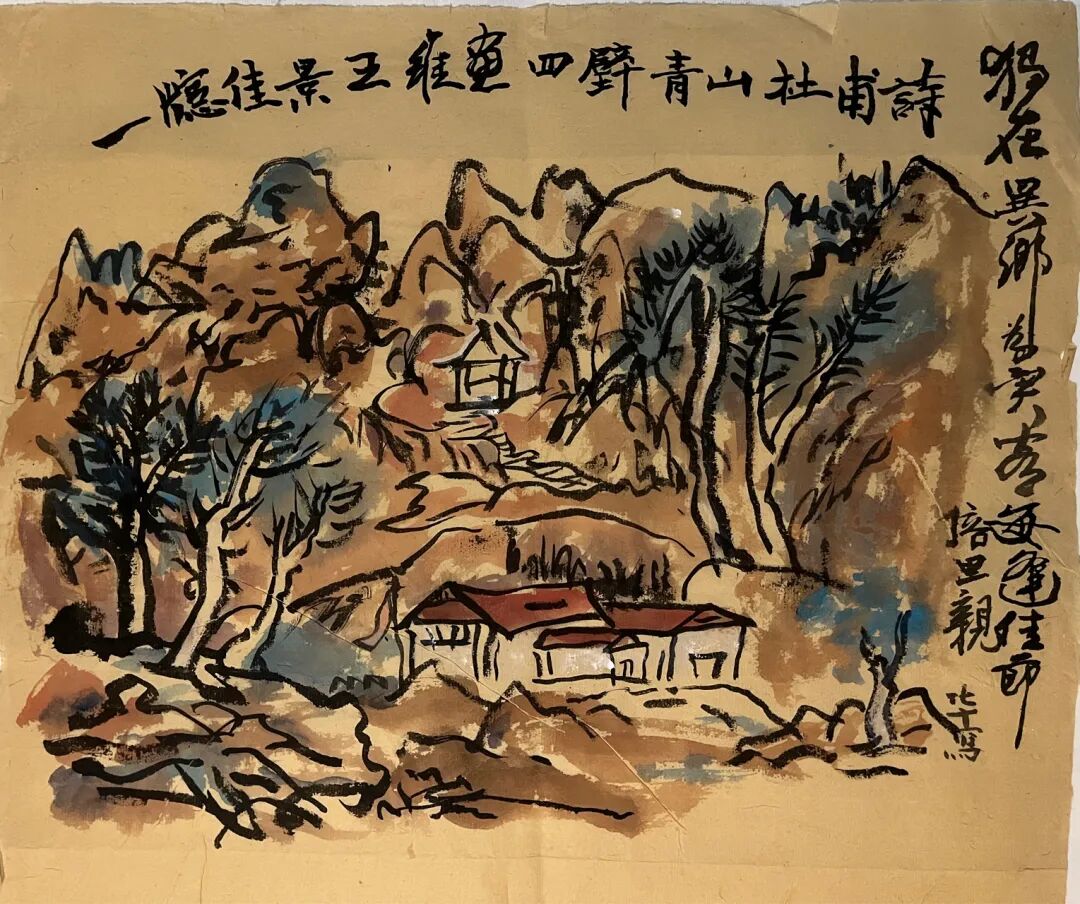 一廳佳景王維畫四壁青山杜甫詩
獨在異鄉為異客每逢佳節
倍思親
寫